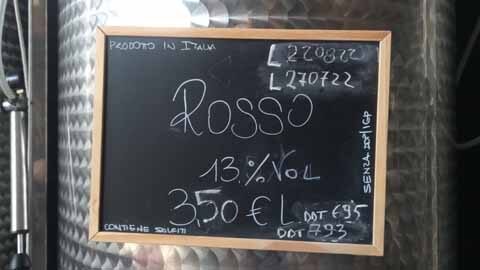 PRODOTTO IN ITALIA
L 220822
L 270722
ROSSO
13.% VOL
3,50 € L
DDT 695
DDT 793
CONTIENE SOLFITI
SENZA DOP/IGP